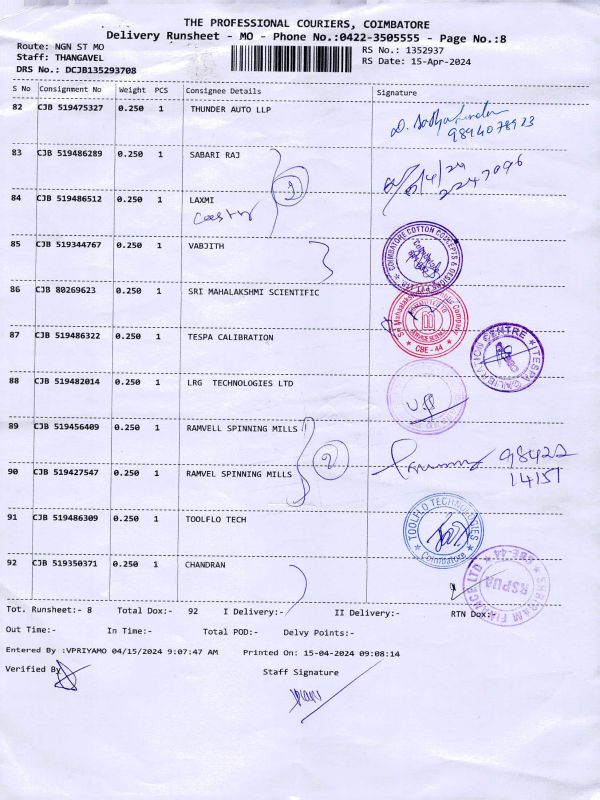 THE PROFESSIONAL COURIERS, COIMBATORE
Delivery Runsheet - MO - Phone No.:0422-3505555 - Page No.:8
Route: NGN ST MO RS No.: 1352937
Staff: THANGAVEL RS Date: 15-Apr-2024
DRS No.: DCJB135293708
S No Consignment No Weight PCS Consignee Details Signature
82 CJB 519475327 0.250 1 THUNDER AUTO LLP
9894078923
83 CJB 519486289 0.250 1 SABARI RAJ
2247096
84 CJB 519486512 0.250 1 LAXMI
2
85 CJB 519344767 0.250 1 VABJITH
COIMBATORE COTTON CONCEPTS & DESIGNS PVT LTD
86 CJB 80269623 0.250 1 SRI MAHALAKSHMI SCIENTIFIC
Sri Mahalakshmi Scientific Company
CBE - 44
87 CJB 519486322 0.250 1 TESPA CALIBRATION
TESPA CALIBRATION CENTRE
88 CJB 519482014 0.250 1 LRG TECHNOLOGIES LTD
89 CJB 519456409 0.250 1 RAMVELL SPINNING MILLS
2
98422
14151
90 CJB 519427547 0.250 1 RAMVEL SPINNING MILLS
91 CJB 519486309 0.250 1 TOOLFLO TECH
TOOLFLO TECHNOLOGIES
Coimbatore
92 CJB 519350371 0.250 1 CHANDRAN
SHRIRAM FINANCE LTD
CBE-44
RSPUA
Tot. Runsheet:- 8 Total Dox:- 92 I Delivery:- II Delivery:- RTN Dox:-
Out Time:- In Time:- Total POD:- Delvy Points:-
Entered By :VPRIYAMO 04/15/2024 9:07:47 AM Printed On: 15-04-2024 09:08:14
Verified By Staff Signature